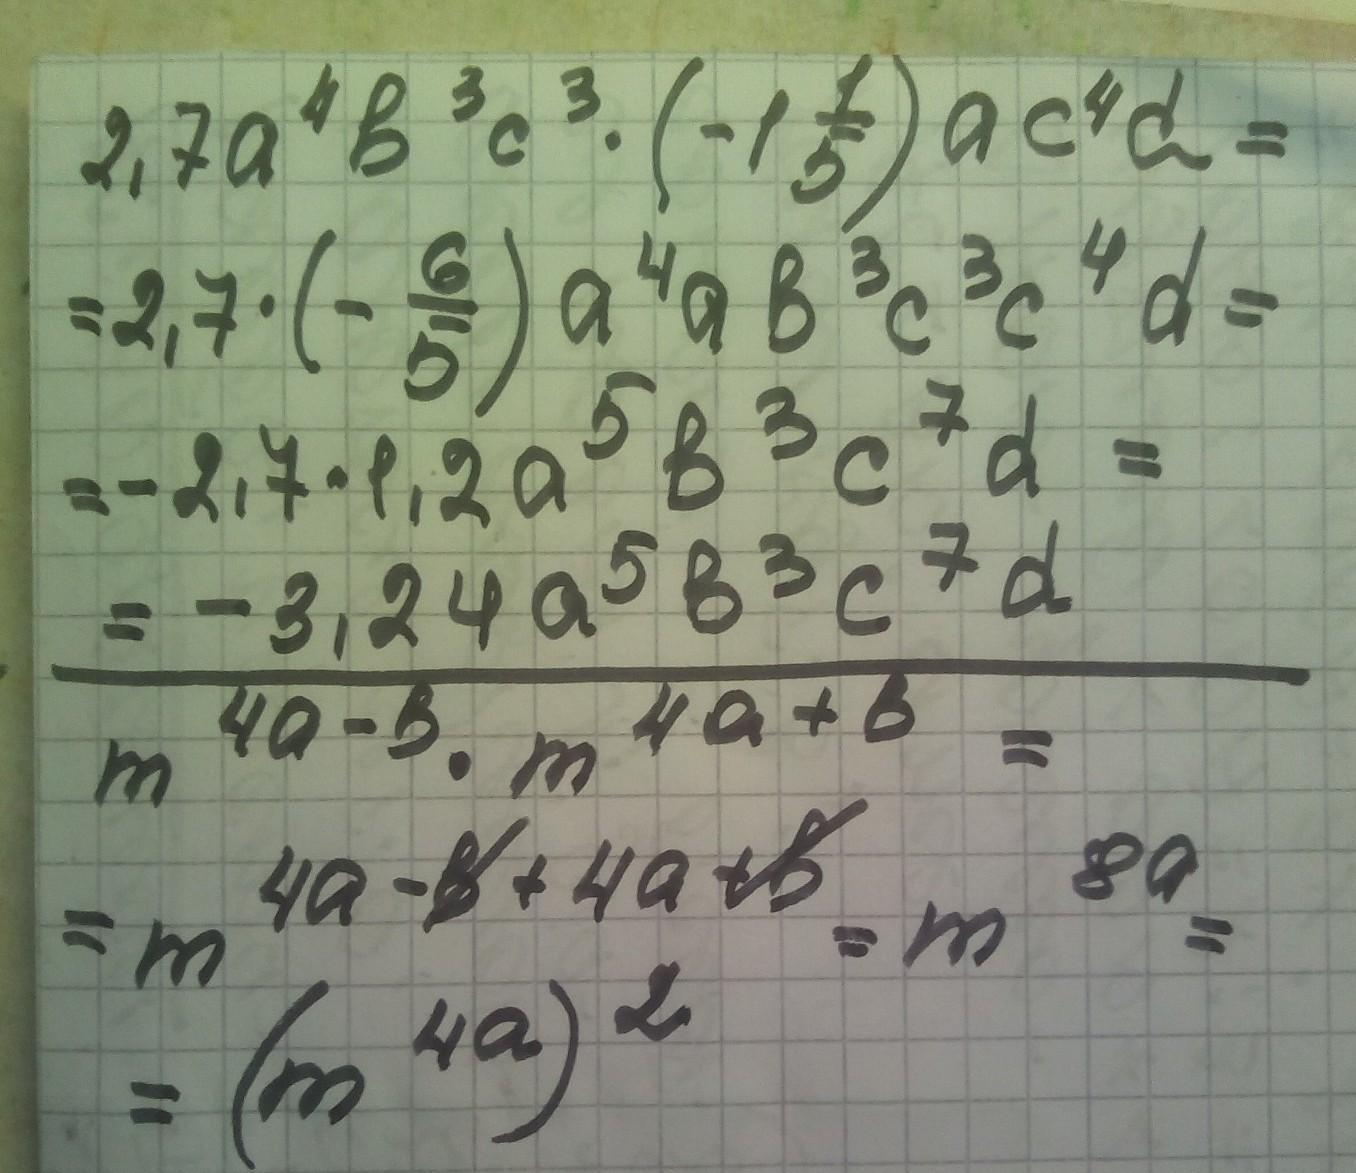 2,7a⁴b³c³·(-1 1/5)ac⁴d=
=2,7·(-6/5)a⁴ab³c³c⁴d=
=-2,7·1,2a⁵b³c⁷d=
=-3,24a⁵b³c⁷d
m^(4a-b)·m^(4a+b)=
=m^(4a-b+4a+b)=m^(8a)=
=(m^(4a))²